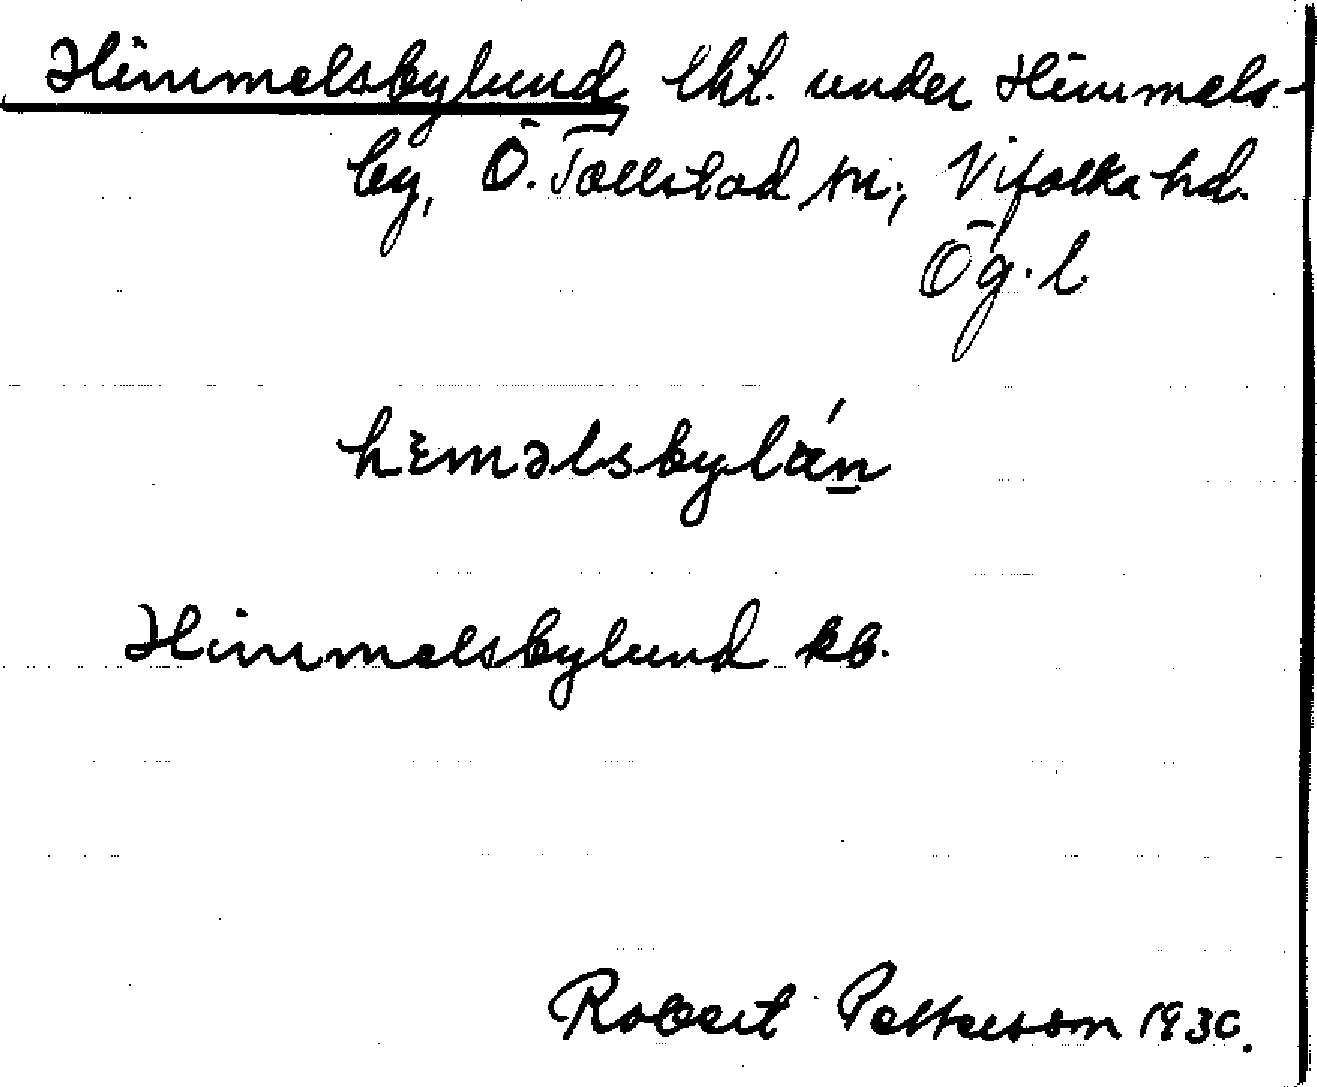 Himmelsbylund lht. under Himmels-
by, Ö. Tollstad sn; Vifolka hd.
Ög. l
himəlsbylán
Himmelsbylund kb.
Robert Petterson 1930.